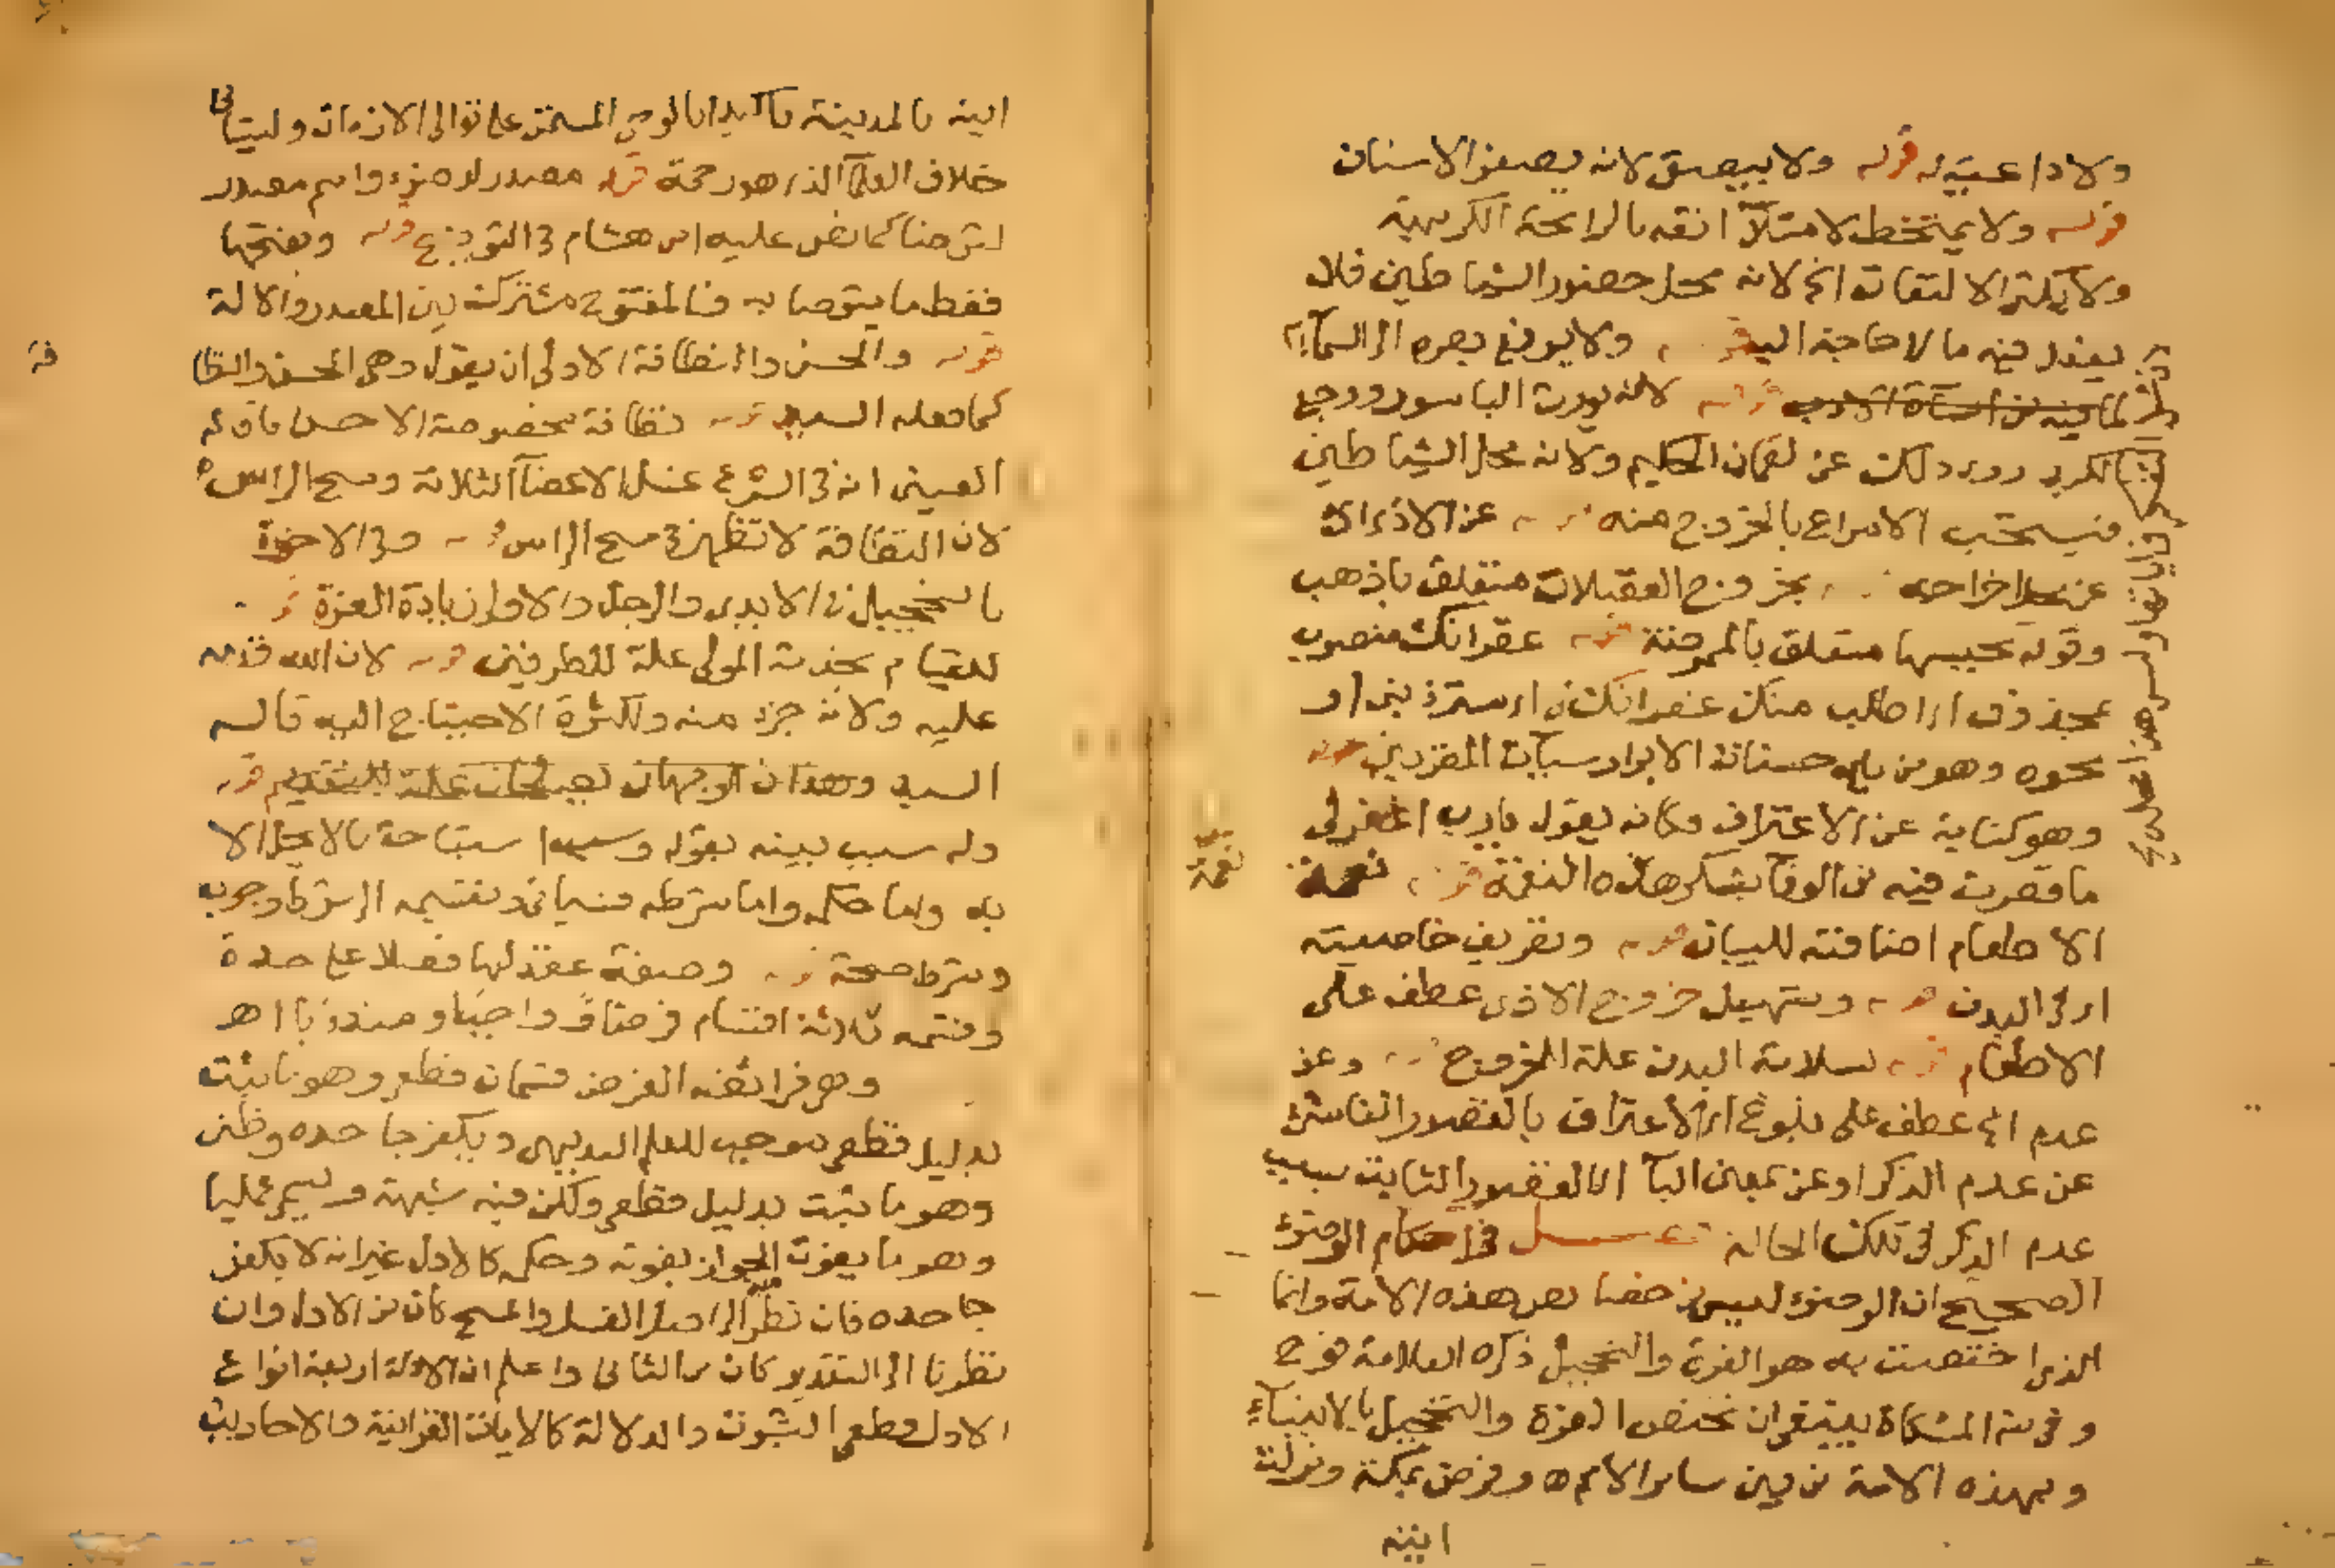 ولا داعية له قوله ولا يبصق لانه يصفر الاسنان
قوله ولا يمتخط لامتلآ انفه بالرايحة الكريهية
ولا يكثر الالتفات الخ لانه محل حضور الشياطين فلا
يفعل فيه ما لا حاجة اليه ولا يرفع بصره الى السمآ
لما فيه من اسآة الادب قوله لانه يورث الباسور ووجع
الكبد روى ذلك عن لقمان الحكيم ولانه محل الشياطين
فيستحب الاسراع بالخروج منه عن الاذى اى
عن محل اخراجه بخروج الفضلات متعلق باذهب
وقوله بحبسها متعلق بالممرضة قوله غفرانك منصوب
بمحذوف اى اطلب منك غفرانك اى ستر ذنبى او
نحوه وهو من باب حسنات الابرار سيآت المقربين قوله
وهو كناية عن الاعتراف وكانه يقول يارب اغفر لى
ما قصرت فيه من الوفآ بشكر هذه النعمة قوله نعمة
نعمة
الاطعام اضافته للبيان قوله وتصريف خاصيته
اى فى البدن قوله وتسهيل خروج الاذى عطف على
الاطعام قوله لسلامة البدن علة للخروج وعن
عدم الخ عطف على بلوغ اى الاعتراف بالقصور الناشئ
عن عدم الذكر او عن بمعنى البآ اى القصور الثابت بسبب
عدم الذكر فى تلك الحالة فصل فى احكام الوضوء
الصحيح ان الوضوء ليس من خصايص هذه الامة وانما
الذى اختصت به هو الغرة والتحجيل ذكره العلامة نوح
وفى المشكاة ينبغى ان تختص الغرة والتحجيل بالانبيآء
وبهذه الامة من بين ساير الامم اه وفرض بمكة ونزلت
ايته
ايته بالمدينة تأكيدا بالوحى المستمر على توالى الازمان وليتأتى
خلاف العلمآ الذى هو رحمة قوله مصدر له ضوء واسم مصدر
لتوضأ كما نص عليه ابن هشام فى التوضيح قوله وبفتحها
فقط ما يتوضا به فالمفتوح مشترك بين المصدر والالة
قوله والحسن والنظافة الاولى ان يقول وهى الحسن والنظا
فة
كما فعله السيد قوله نظافة مخصوصة الاحسن ما قاله
العينى انه فى الشرع غسل الاعضآ الثلاثة ومسح الراس
لان النظافة لا تظهر فى مسح الراس قوله وفى الاخرة
بالتحجيل فى الايدى والرجل والاولى زيادة الغرة
للقيام بخدمة المولى علة للطرفين قوله لان الله قدمه
عليه ولانه جزء منه ولكثرة الاحتياج اليه قاله
السيد وهذان الوجهان يصلحان علة للتقديم قوله
وله سبب بينه بقوله وسببه استباحة ما لا يحل الا
به واما حكمه واما شرطه فسياتى تقسيمه الى شرط وجوب
وشرط صحة قوله وصفة عقد لها فصلا على حدة
وقسمه ثلاثة اقسام فرضا وواجبا ومندوبا اهـ
وهى فرائضه الفرض قسمان قطعى وهو ما ثبت
بدليل قطعى موجب للعلم البديهى ويكفر جاحده وظنى
وهو ما ثبت بدليل قطعى ولكن فيه شبهة ويسمى عمليا
وهو ما يفوت الجواز بفوته وحكمه كالاول غير انه لا يكفر
جاحده فان نظر الى اصل الغسل والمسح كان من الاول وان
نظرنا الى التقدير كان من الثانى واعلم ان الادلة اربعة انواع
الاول قطعى الثبوت والدلالة كالايات القرانية والاحاديث